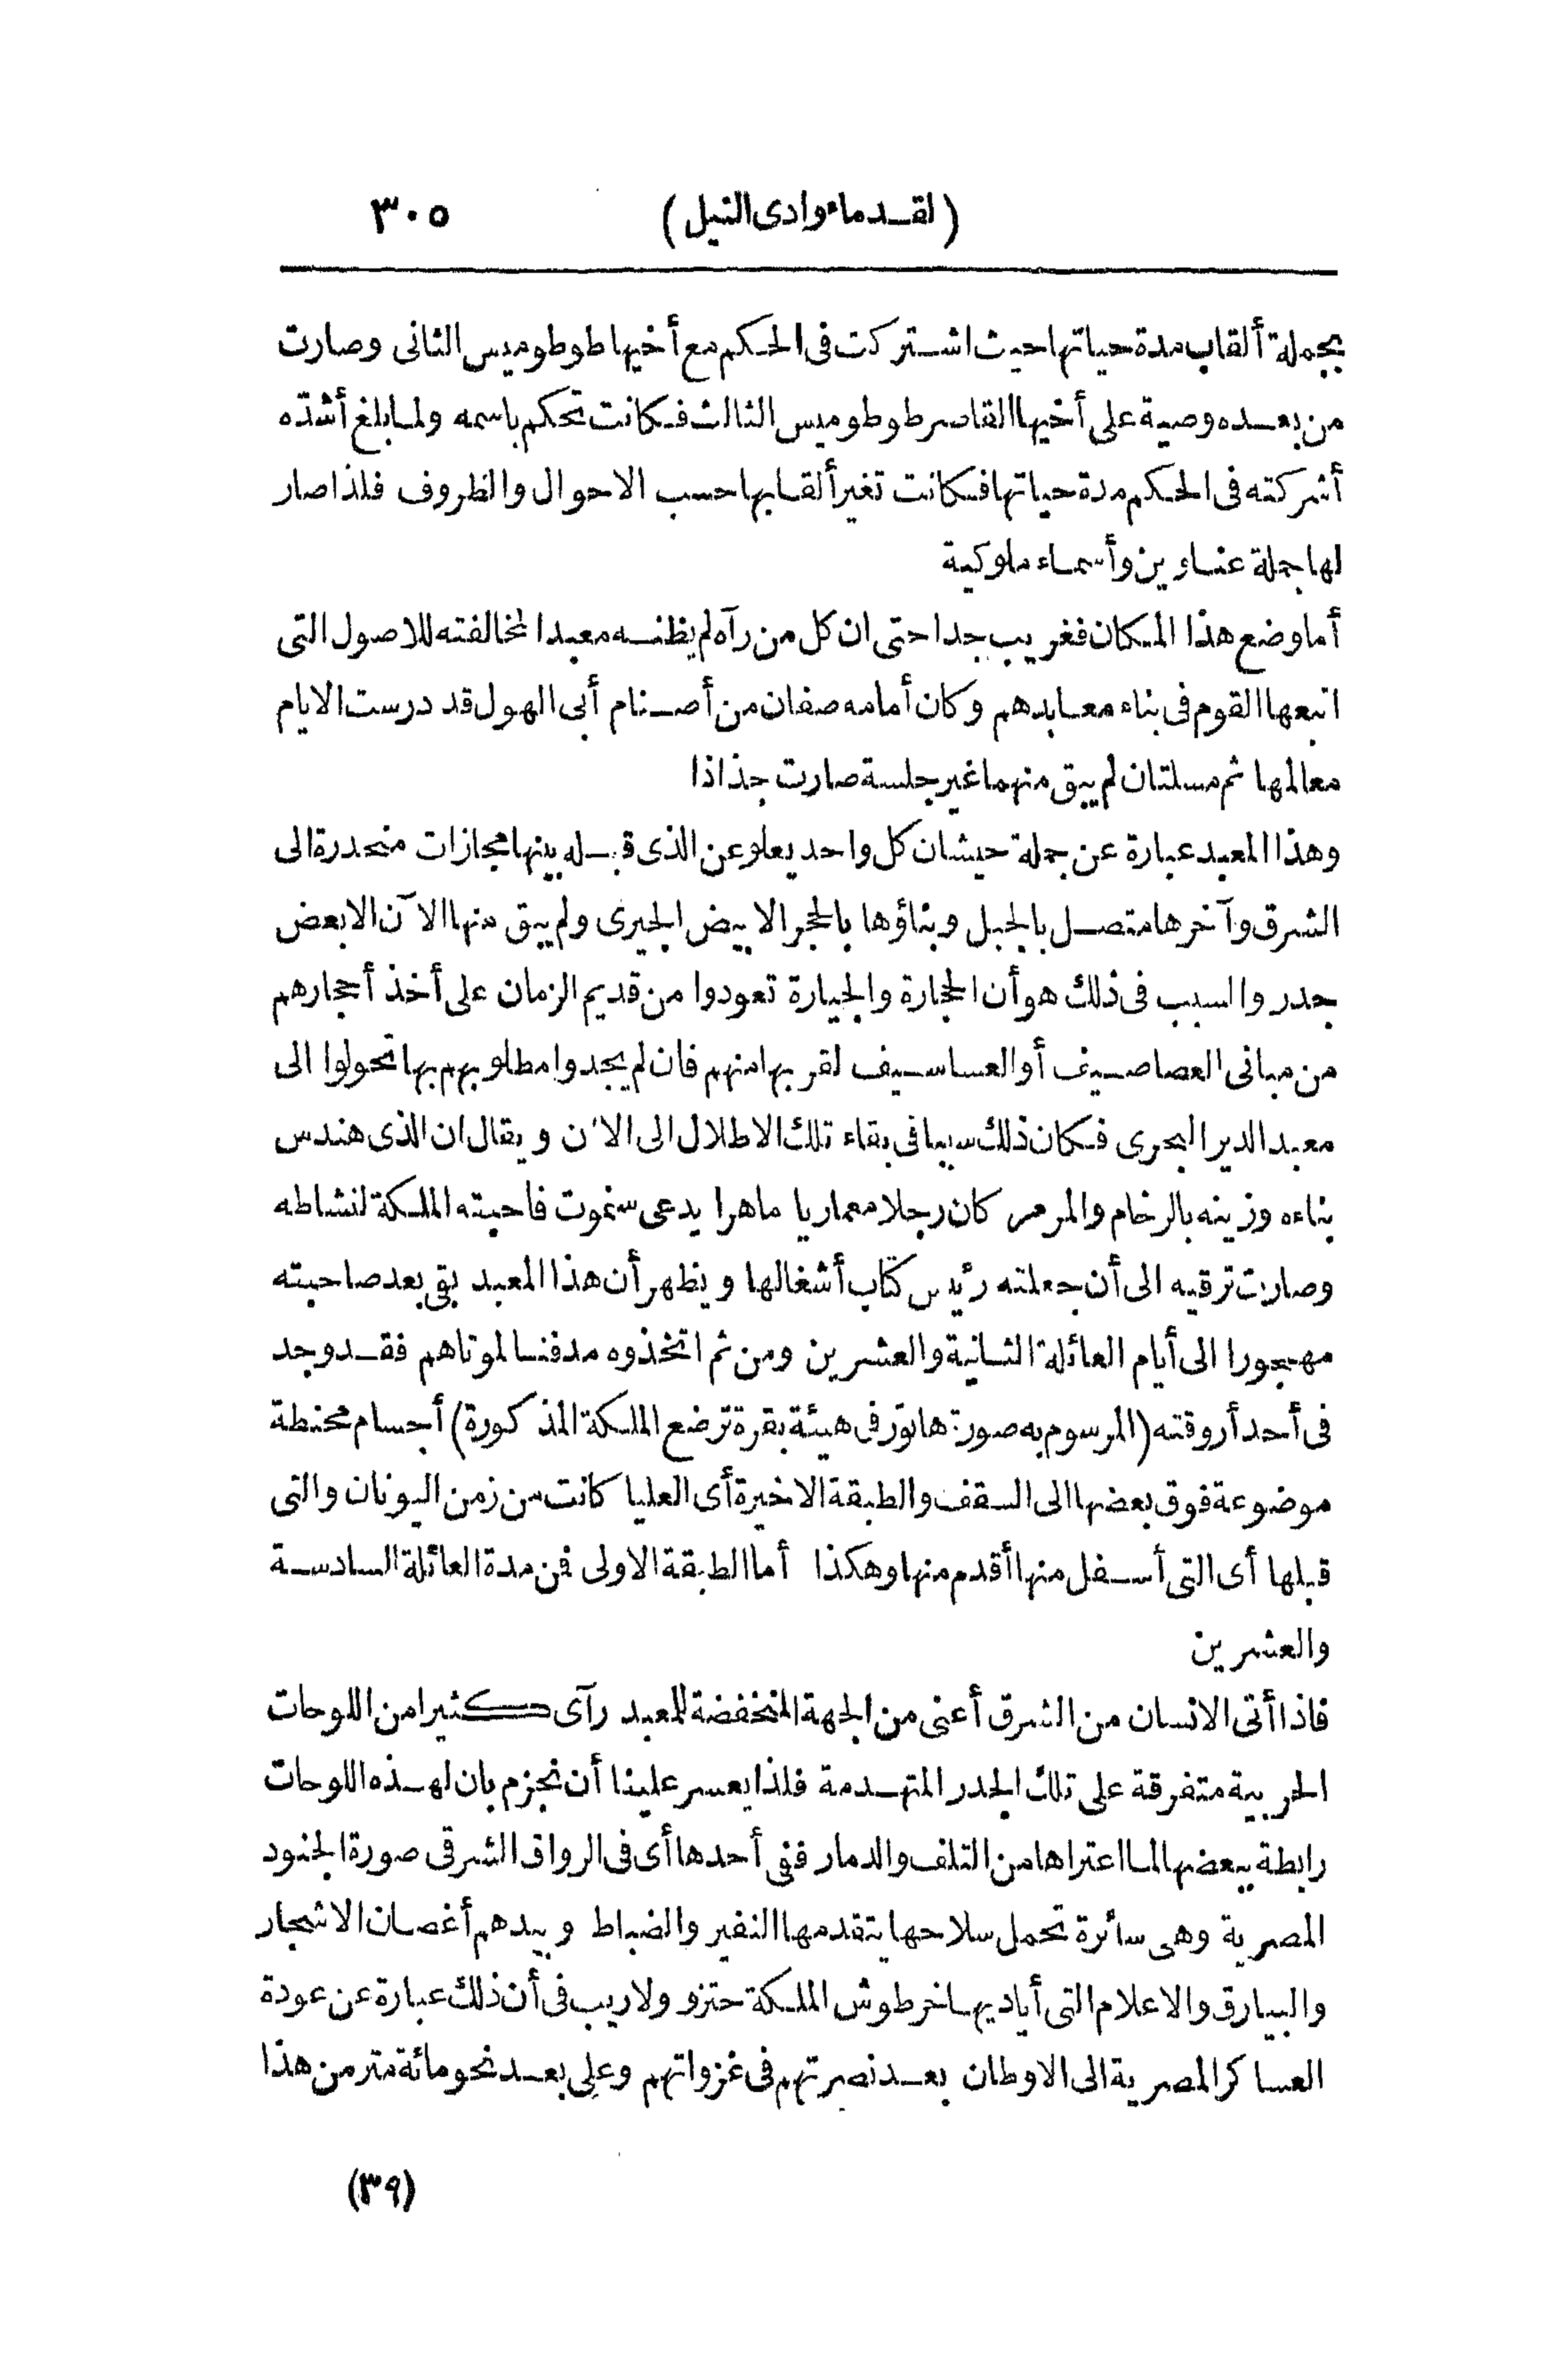 (لقدماء وادى النيل) ٣٠٥
بجملة ألقاب مدة حياتها حيث اشتركت فى الحكم مع أخيها طوطوميس الثانى وصارت
من بعده وصية على أخيها القاصر طوطوميس الثالث فكانت تحكم باسمه ولما بلغ أشدّه
أشركته فى الحكم مدة حياتها فكانت تغير ألقابها حسب الاحوال والظروف فلذا صار
لها جملة عناوين وأسماء ملوكية
أما وضع هذا المكان فغريب جدا حتى ان كل من رآه لم يظنه معبدا لمخالفته للاصول التى
اتبعها القوم فى بناء معابدهم وكان أمامه صفان من أصنام أبى الهول قد درست الايام
معالمها ثم مسلتان لم يبق منهما غير جلسة صارت جذاذا
وهذا المعبد عبارة عن جملة حيشان كل واحد يعلو عن الذى قبله بينها مجازات منحدرة الى
الشرق وآخرها متصل بالجبل وبناؤها بالحجر الابيض الجيرى ولم يبق منها الآن الا بعض
جدر والسبب فى ذلك هو أن الحجارة والجيارة تعودوا من قديم الزمان على أخذ أحجارهم
من مبانى العصاصيف أو العساسيف لقربها منهم فان لم يجدوا مطلوبهم بها تحولوا الى
معبد الدير البحرى فكان ذلك سببا فى بقاء تلك الاطلال الى الآن ويقال ان الذى هندس
بناءه وزينه بالرخام والمرمر كان رجلا معماريا ماهرا يدعى سنموت فاحبته الملكة لنشاطه
وصارت ترقيه الى أن جعلته رئيس كتّاب أشغالها ويظهر أن هذا المعبد بقى بعد صاحبته
مهجورا الى أيام العائلة الثانية والعشرين ومن ثم اتخذوه مدفنا لموتاهم فقد وجد
فى أحد أروقته (المرسوم به صورة هاتور فى هيئة بقرة ترضع الملكة المذكورة) أجسام محنطة
موضوعة فوق بعضها الى السقف والطبقة الاخيرة أى العليا كانت من زمن اليونان والتى
قبلها أى التى أسفل منها أقدم منها وهكذا أما الطبقة الاولى فمن مدة العائلة السادسة
والعشرين
فاذا أتى الانسان من الشرق أعنى من الجهة المنخفضة للمعبد رآى كثيرا من اللوحات
الحربية متفرقة على تلك الجدر المتهدمة فلذا يعسر علينا أن نجزم بان لهذه اللوحات
رابطة ببعضها لما اعتراها من التلف والدمار ففى أحدها أى فى الرواق الشرقى صورة الجنود
المصرية وهى سائرة تحمل سلاحها يتقدمها النفير والضباط وبيدهم أغصان الاشجار
والبيارق والاعلام التى أياديها خرطوش الملكة حتزو ولا ريب فى أن ذلك عبارة عن عودة
العساكر المصرية الى الاوطان بعد نصرتهم فى غزواتهم وعلى بعد نحو مائة متر من هذا
(٣٩)